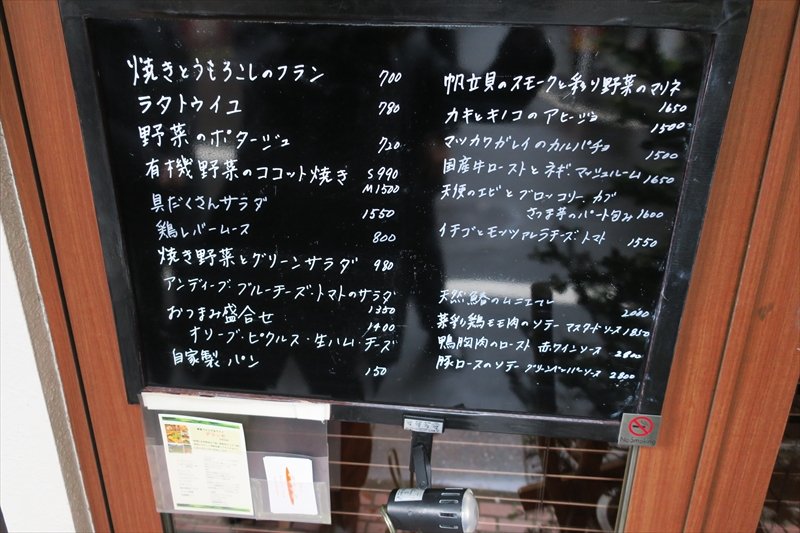 焼きとうもろこしのフラン 700
ラタトウイユ 780
野菜のポタージュ 720
有機野菜のココット焼き S 990
M1500
具だくさんサラダ 1550
鶏レバームース 800
焼き野菜とグリーンサラダ 980
アンディーブ ブルーチーズ・トマトのサラダ
1350
おつまみ盛合せ
1400
オリーブ・ピクルス・生ハム・チーズ
自家製 パン 150
帆立貝のスモークと彩り野菜のマリネ
1650
カキとキノコのアヒージョ 1500
マツカワガレイのカルパチョ 1500
国産牛ローストとネギ、マッシュルーム 1650
天使のエビとブロッコリー、カブ
さつま芋のパート包み 1600
イチゴとモッツァレラチーズ・トマト 1550
天然鰆のムニエル 2000
菜彩鶏モモ肉のソテー マスタードソース 1850
鴨胸肉のロースト 赤ワインソース 2800
豚ロースのソテー グリーンペッパーソース 2800
No Smoking